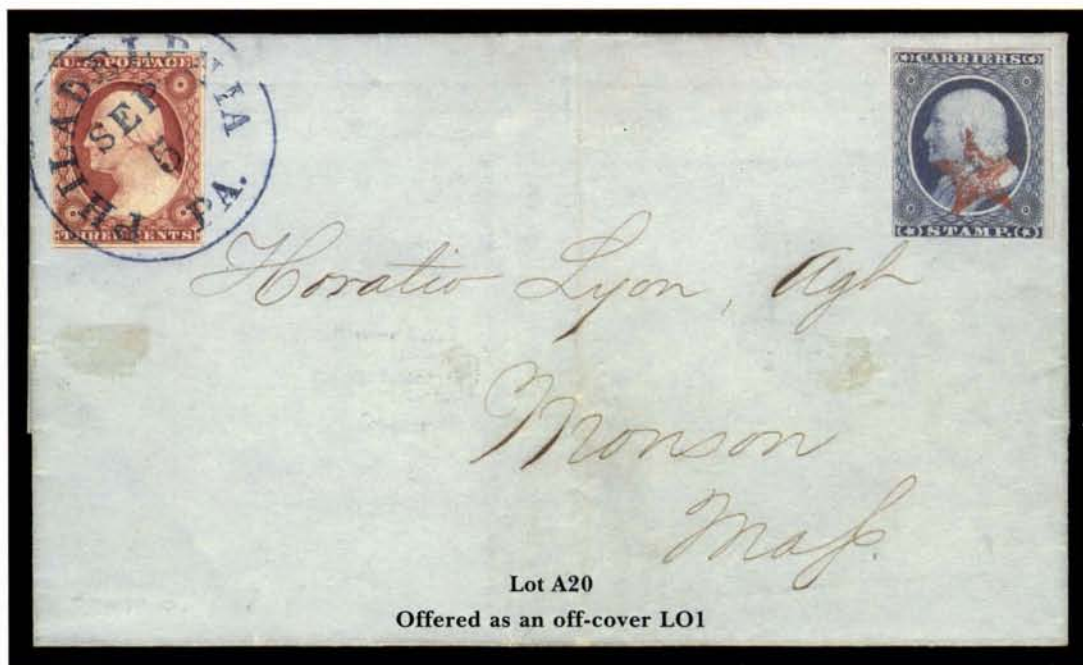 PHILADELPHIA PA.
SEP
5
U.S. POSTAGE
THREE CENTS
CARRIERS
STAMP.
Horatio Lyon, Agt
Monson
Maſs.
Lot A20
Offered as an off-cover LO1